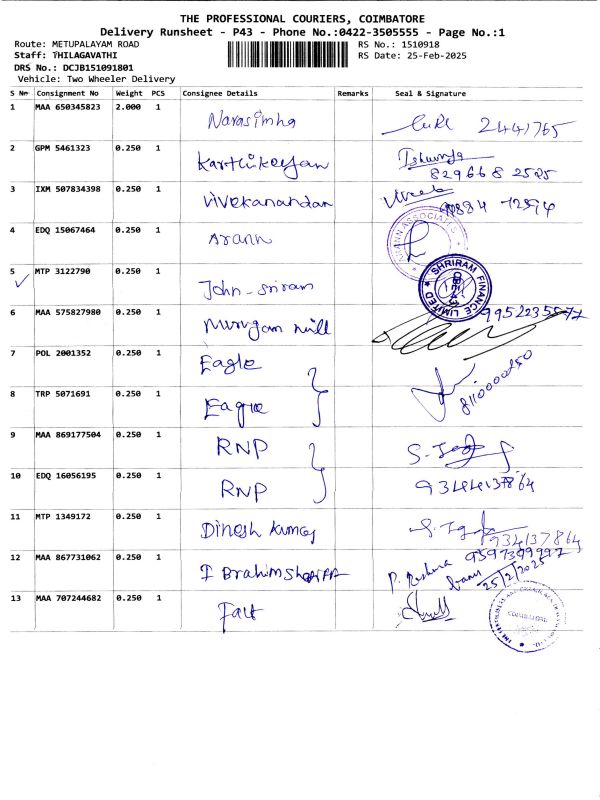 THE PROFESSIONAL COURIERS, COIMBATORE
Delivery Runsheet - P43 - Phone No.:0422-3505555 - Page No.:1
Route: METUPALAYAM ROAD RS No.: 1510918
Staff: THILAGAVATHI RS Date: 25-Feb-2025
DRS No.: DCJB151091801
Vehicle: Two Wheeler Delivery
S No Consignment No Weight PCS Consignee Details Remarks Seal & Signature
1 MAA 650345823 2.000 1 Narasimha 2441765
2 GPM 5461323 0.250 1 Karthikeyan
829668 2525
3 IXM 507834398 0.250 1 Vivekanandan Viveek
4 EDQ 15067464 0.250 1 Arann
ARANN ASSOCIATES
5 MTP 3122790 0.250 1 John-sriram SHRIRAM FINANCE LIMITED
6 MAA 575827980 0.250 1 Murugan mill
7 POL 2001352 0.250 1 Eagle
8110000250
8 TRP 5071691 0.250 1 Eagle
9 MAA 869177504 0.250 1 RNP
10 EDQ 16056195 0.250 1 RNP
11 MTP 1349172 0.250 1 Dinesh Kumar
12 MAA 867731062 0.250 1 Ibrahimsha
9597399997
25/2/2025
13 MAA 707244682 0.250 1
COIMBATORE